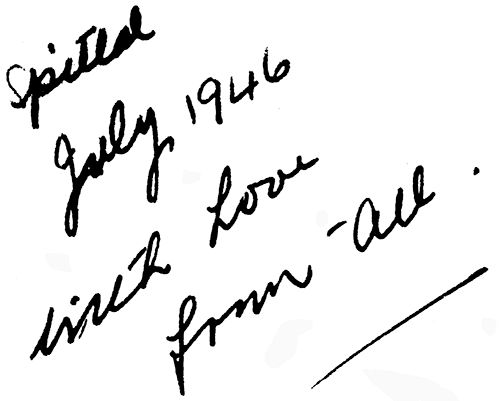 Spittal
July, 1946
with Love
from - All.